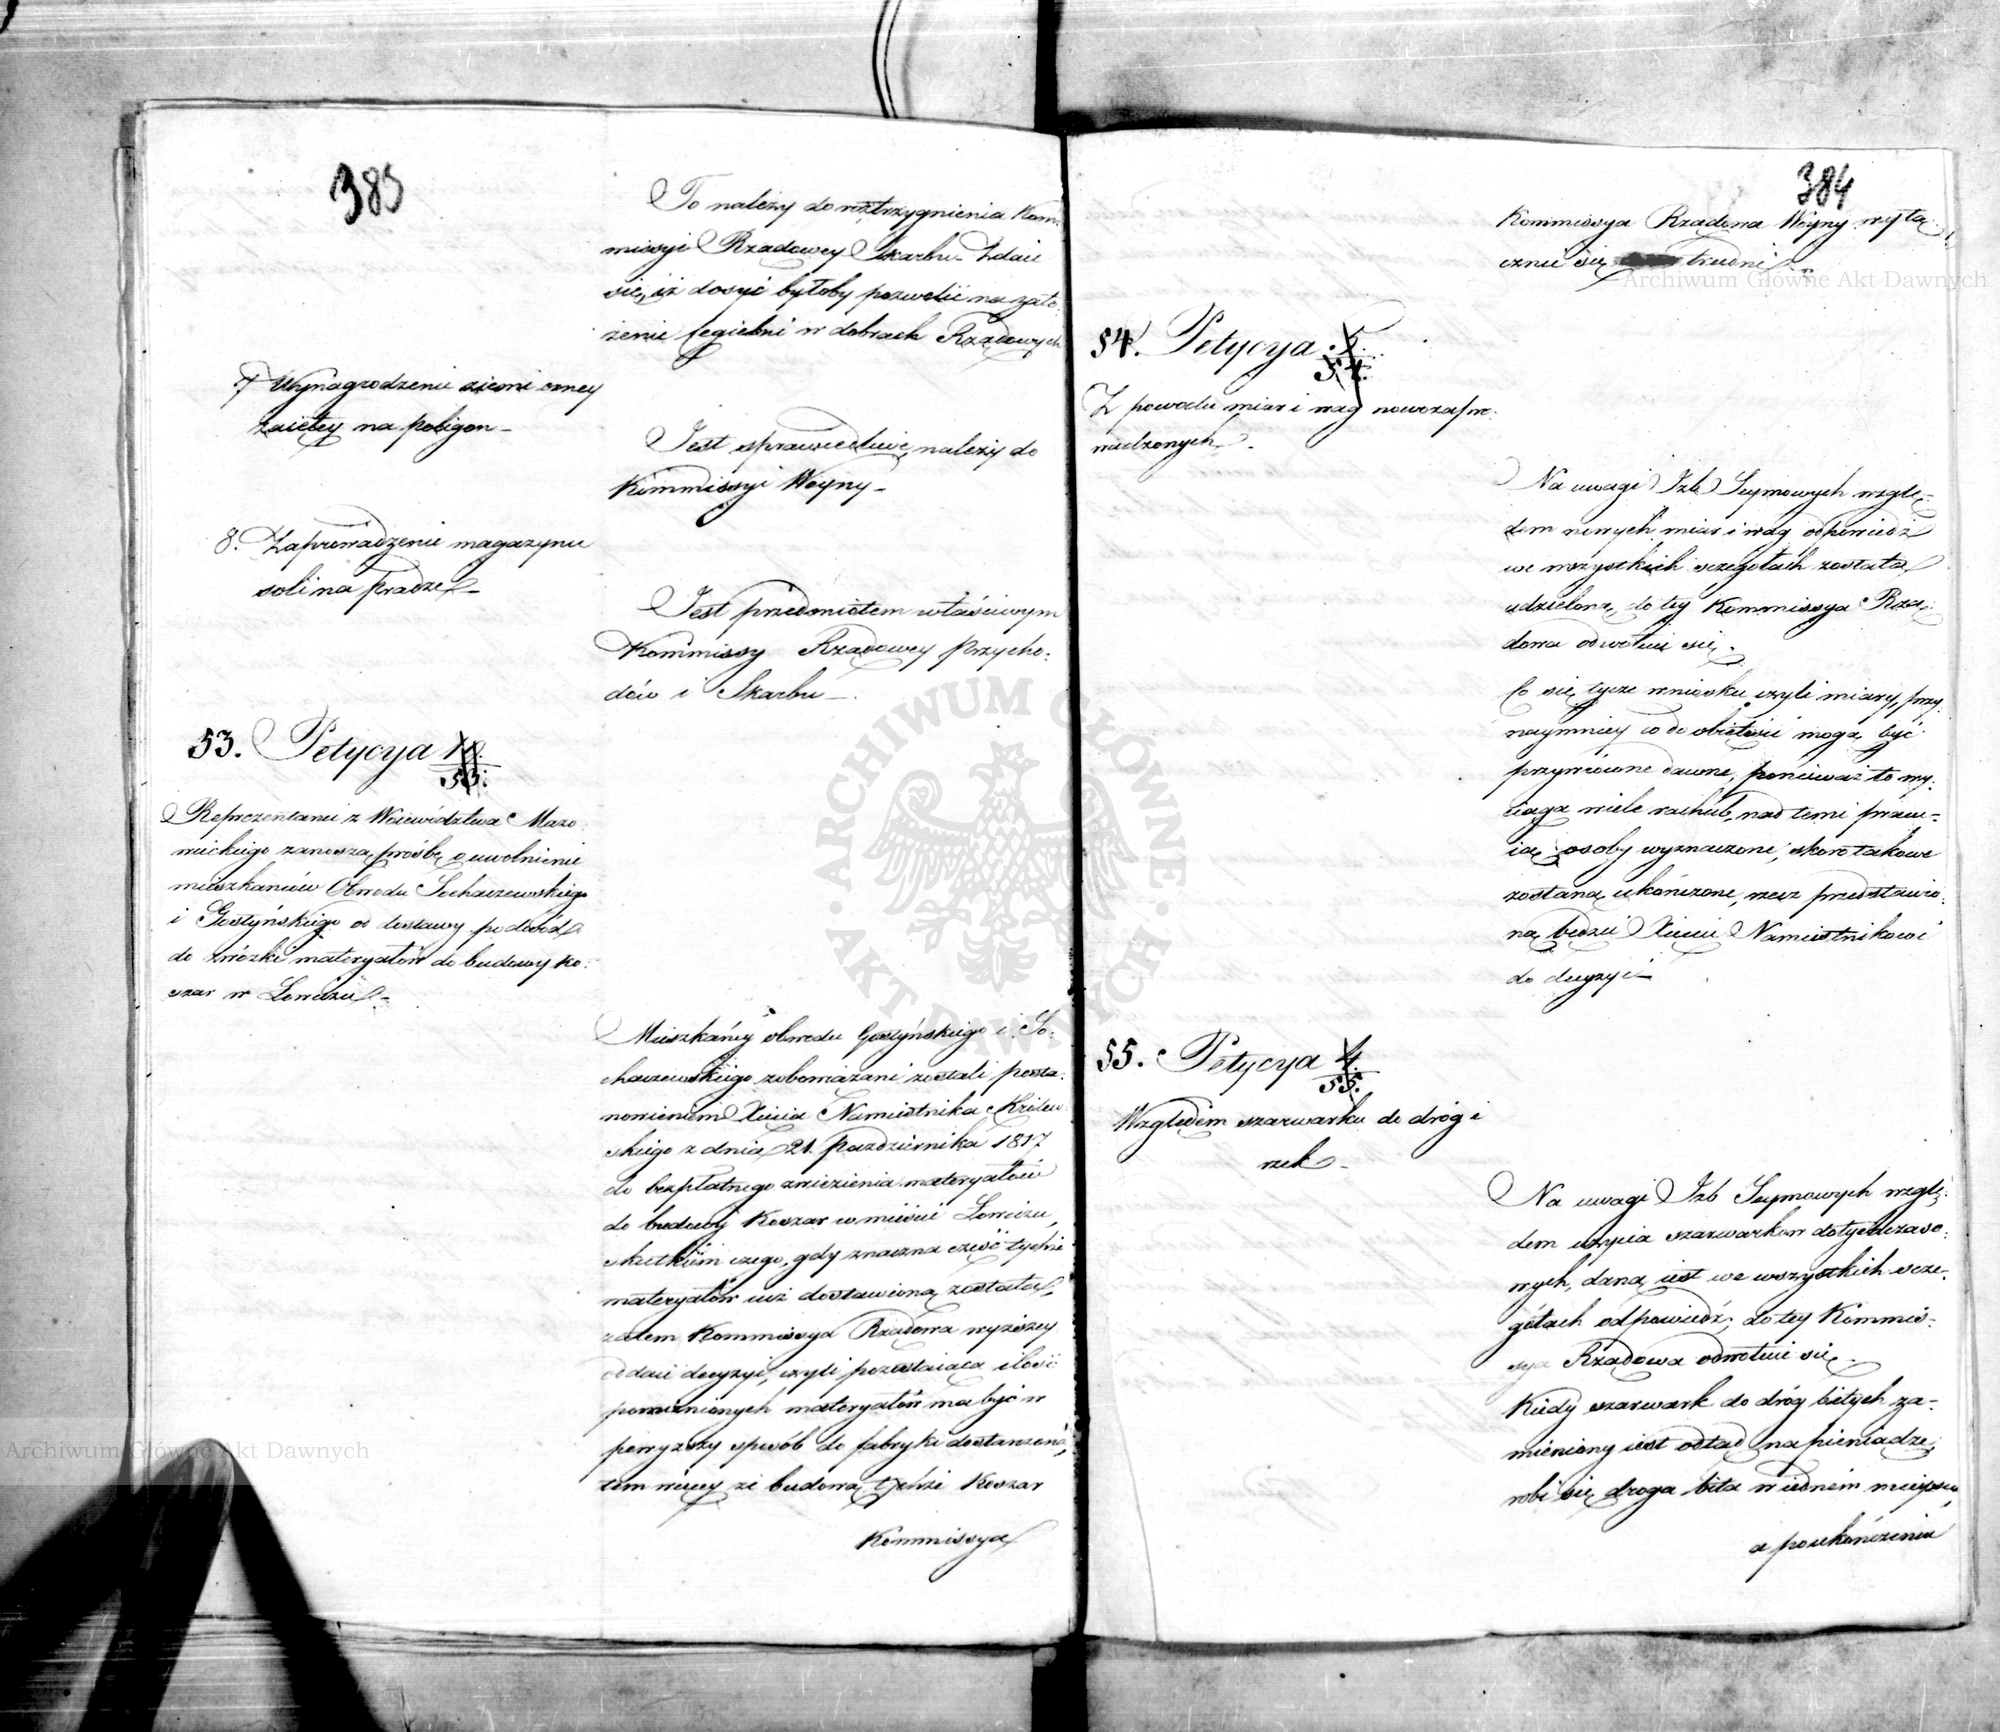 383
To należy do roztrzygnienia Kom-
missyi Rządowey Skarbu. Zdaie
się, iż dosyć byłoby pozwolić na zało-
żenie cegielni w dobrach Rządowych
7. Wynagrodzenie ziemi orney
zaiętey na poligon –
Jest sprawiedliwe, należy do
Kommissyi Woyny –
8. Zaprowadzenie magazynu
soli na Pradze –
Jest przedmiotem właściwym
Kommissy Rządowey Przycho-
dów i Skarbu –
53. Petycya
53.
Reprezentanci z Woiewództwa Mazo-
wieckiego zanoszą prośbę o uwolnienie
mieszkańców Obwodu Sochaczewskiego
i Gostyńskiego od dostawy podwód
do zwózki materyałów do budowy ko-
szar w Łowiczu –
Mieszkańcy obwodu Gostyńskiego i So-
chaczewskiego zobowiązani zostali posta-
nowieniem Xięcia Namiestnika Królew-
skiego z dnia 21. Października 1817
do bezpłatnego zwiezienia materyałów
do budowy Koszar w mieście Łowiczu,
skutkiem czego, gdy znaczna część tychże
materyałów iuż dostawioną została,
zatem Kommissya Rządowa wyższey
oddaie decyzyi, czyli pozostaiąca ilość
pomienionych materyałów ma być w
powyższy sposób do fabryki dostarczoną,
tem więcey że budową tychże Koszar
Kommissya
384
Kommissya Rządowa Woyny wyłą-
cznie się trudni.
54. Petycya 5.
54.
Z powodu miar i wag nowo zapro-
wadzonych –
Na uwagi Izb Seymowych wzglę-
dem nowych miar i wag odpowiedź
we wszystkich szczegółach została
udzielona, do tey Kommissya Rzą-
dowa odwołuie się.
Co się tycze wniosku czyli miary, przy-
naymniey co do obiętości mogą być
przywrócone dawne, ponieważ to wy-
ciąga wiele rachub, nad temi pracu-
ią osoby wyznaczone, skoro takowe
zostaną ukończone, rzecz przedstawio-
ną będzie Xięciu Namiestnikowi
do decyzyi –
55. Petycya 4.
55.
Względem szarwarku do dróg i
rzek –
Na uwagi Izb Seymowych wzglę-
dem użycia szarwarków dotychczaso-
wych, dana iest we wszystkich szcze-
gółach odpowiedź, do tey Kommis-
sya Rządowa odwołuie się.
Kiedy szarwark do dróg bitych za-
mieniony iest odtąd na pieniądze,
robi się droga bita w iednem mieyscu,
a po ukończeniu
ARCHIWUM GŁÓWNE AKT DAWNYCH
Archiwum Główne Akt Dawnych
Archiwum Główne Akt Dawnych